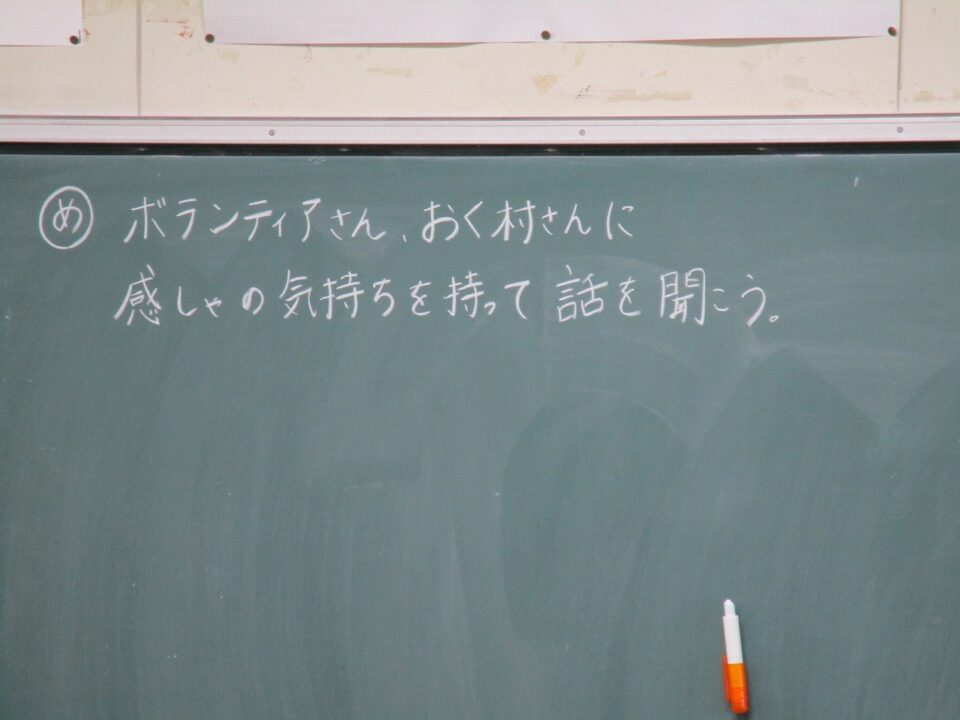 め ボランティアさん、おく村さんに
感しゃの気持ちを持って話を聞こう。